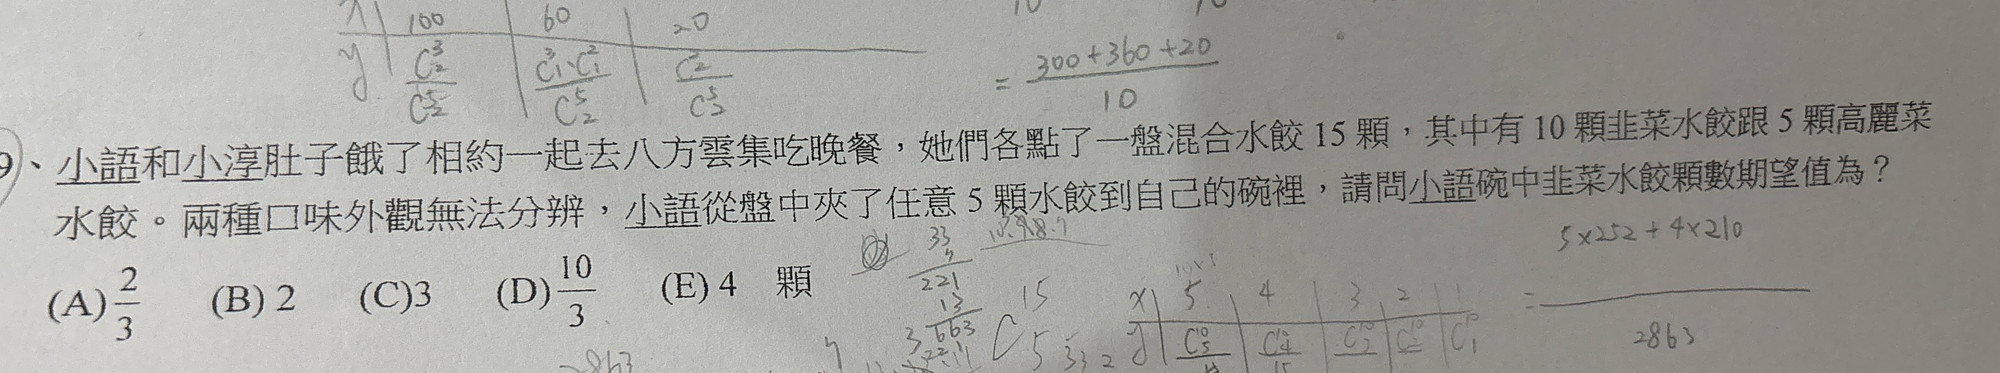 x 100 60 20
y C³₂/C⁵₂ C³₁·C²₁/C⁵₂ C²₂/C⁵₂
= 300+360+20/10
9、小語和小淳肚子餓了相約一起去八方雲集吃晚餐，她們各點了一盤混合水餃 15 顆，其中有 10 顆韭菜水餃跟 5 顆高麗菜
水餃。兩種口味外觀無法分辨，小語從盤中夾了任意 5 顆水餃到自己的碗裡，請問小語碗中韭菜水餃顆數期望值為？
(A) 2/3 (B) 2 (C)3 (D) 10/3 (E) 4 顆
5×252+4×210
= 2863
33
221
13
3 663
C 15 5
x 5 4 3 2 1
y
2863